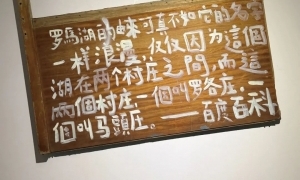 罗馬湖的由来可真不如它的名字
一样浪漫，仅仅因为這個
湖在两个村庄之間，而這
兩個村庄，一個叫罗各庄，
個叫马頭庄。——百度百科